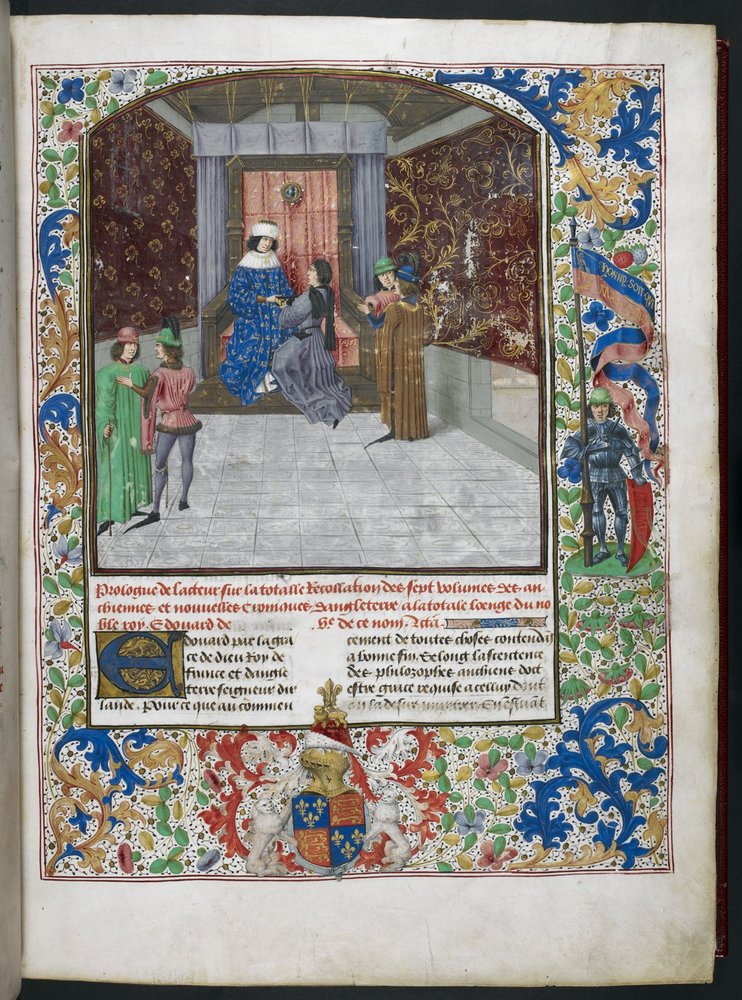 HONNY · SOIT · QVI
Prologue de lacteur sur la totalle Recollation des sept volumes des an
chiennes et nouvelles Cronicques dangleterre a la totale loenge du no
ble roy. Edouard de be de ce nom
Edouard par la gra
ce de dieu Roy de
france et dangle
terre seigneur dir
lande. Pour ce que au commen
cement de toutes choses contendās
a bonne fin. Selong la sentence
des philozophes anchiens doct
estre grace requise a celluy dont